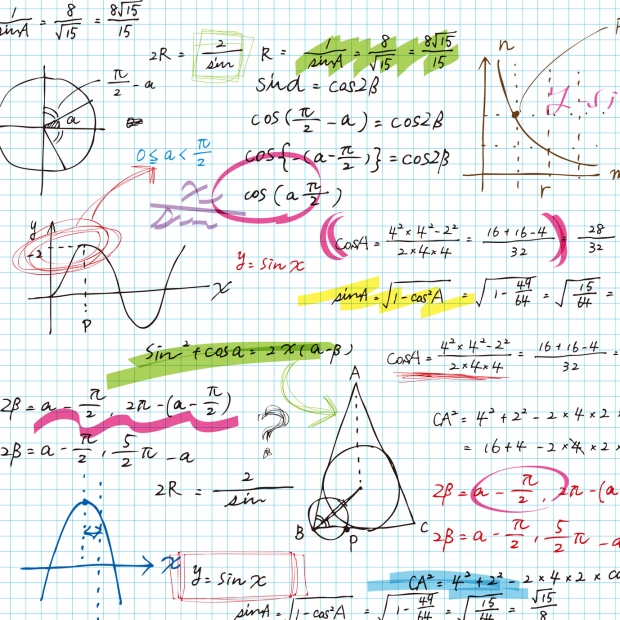 1/sinA = 8/√15 = 8√15/15
2R = 2/sin
R = 1/sinA = 8/√15 = 8√15/15
n
sind = cos2β
π/2 - a
a
cos(π/2 - a) = cos2β
0 ≦ a < π/2
cos{-(a - π/2)} = cos2β
cos(a π/2)
r
y
-2
x
P
y = sin x
cosA = 4²×4²-2²/2×4×4 = 16+16-4/32 = 28/32
sinA = √1-cos²A = √1-49/64 = √15/64 =
sin² + cosa = 2x(a-β)
cosA = 4²×4²-2²/2×4×4 = 16+16-4/32 =
A
2β = a - π/2, 2π - (a - π/2)
?
CA² = 4² + 2² - 2×4×2×
2β = a - π/2, 5/2 π - a
= 16+4 - 2×4×2×
2R = 2/sin
2β = a - π/2, 2π - (a
B
P
C
2β = a - π/2, 5/2 π - a
x
y = sin x
CA² = 4² + 2² - 2×4×2×co
sinA = √1-cos²A = √1-49/64 = √15/64 = √15/8